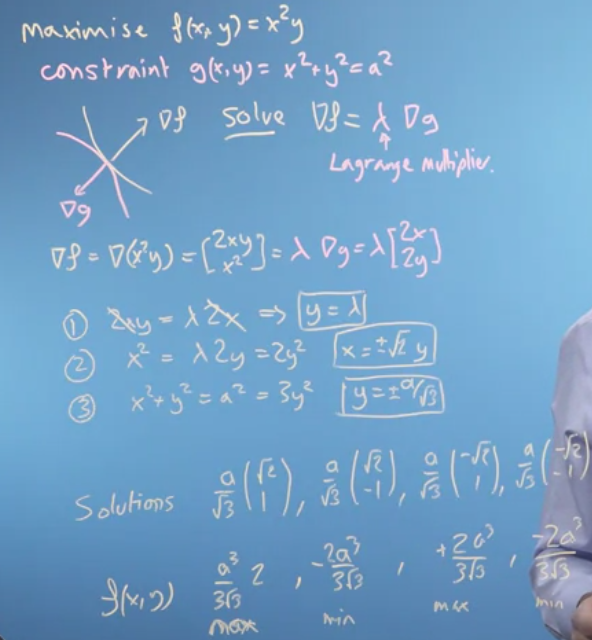 maximise f(x,y) = x²y
constraint g(x,y) = x²+y² = a²
∇f solve ∇f = λ ∇g
↑
Lagrange multiplier.
∇g
∇f = ∇(x²y) = [2xy x²] = λ ∇g = λ[2x 2y]
① 2xy = λ 2x ⇒ y = λ
② x² = λ 2y = 2y² x = ±√2 y
③ x²+y² = a² = 3y² y = ±a/√3
Solutions a/√3 (√2 1), a/√3 (√2 -1), a/√3 (-√2 1), a/√3 (-√2 -1)
f(x,y) a³/3√3 2, -2a³/3√3, +2a³/3√3, -2a³/3√3
max min max min